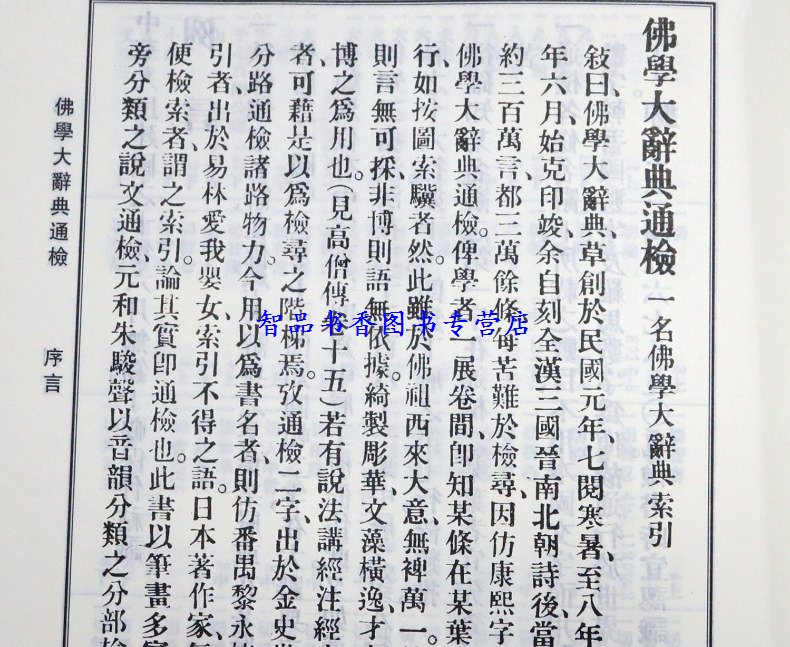 佛學大辭典通檢 一名佛學大辭典索引
敍曰、佛學大辭典、草創於民國元年、七閱寒暑、至八年
年六月、始克印竣、余自刻全漢三國晉南北朝詩後、當
約三百萬言、都三萬餘條、每苦難於檢尋、因仿康熙字
佛學大辭典通檢。俾學者一展卷間、卽知某條在某葉
行、如按圖索驥者然。此雖於佛祖西來大意、無裨萬一。
則言無可採、非博則語無依據。綺製彫華、文藻橫逸、才
博之爲用也。(見高僧傳卷十五)若有說法講經注經
者、可藉是以爲檢尋之階梯焉。攷通檢二字、出於金史
分路通檢諸路物力。今用以爲書名者、則仿番禺黎永
引者、出於易林愛我嬰女、索引不得之語。日本著作家、
便檢索者、謂之索引。論其實卽通檢也。此書以筆畫多
旁分類之說文通檢、元和朱駿聲以音韻分類之分部
佛學大辭典通檢 序言
智品书香图书专营店